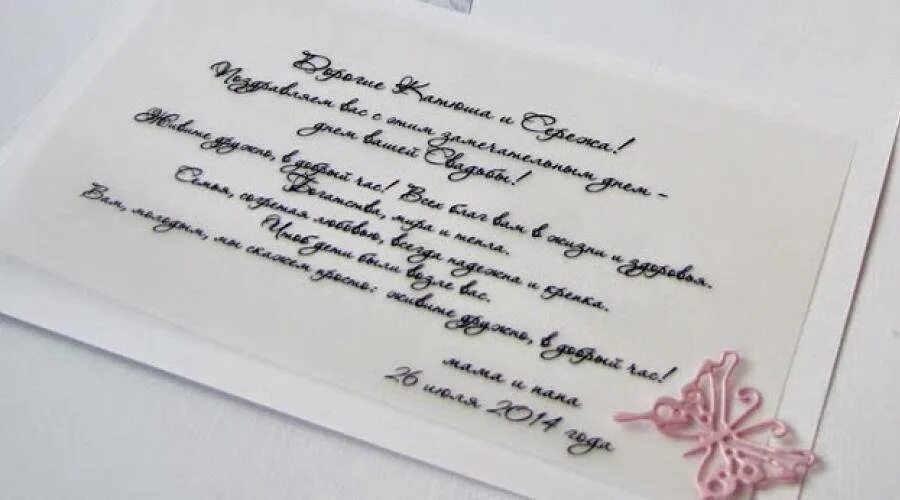 Дорогие Катюша и Сережа!
Поздравляем вас с этим замечательным днем –
днем вашей Свадьбы!
Живите дружно, в добрый час! Всех благ вам в жизни и здоровья.
Богатства, мира и тепла.
Семья, согретая любовью, всегда надежна и крепка.
Чтоб дети были возле вас.
Вам, молодым, мы скажем просто: живите дружно, в добрый час!
мама и папа
26 июля 2014 года